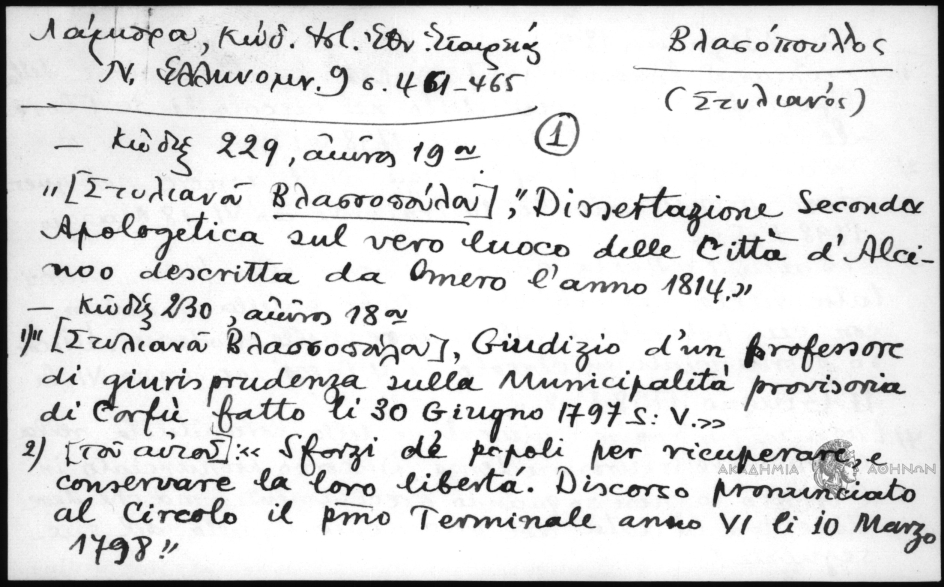 Λάμπρου, Κώδ. Ἱστ. Ἐθν. Ἑταιρείας
Ν. Ἑλληνομν. 9 σ. 461-465
Βλασόπουλος
(Στυλιανός)
1
— Κῶδιξ 229, αἰῶνος 19ου
"[Στυλιανοῦ Βλασσοπούλου], "Dissertazione Seconda
Apologetica sul vero luoco delle Città d'Alci-
noo descritta da Omero l'anno 1814.»
— Κῶδιξ 230, αἰῶνος 18ου
1)" [Στυλιανοῦ Βλασσοπούλου], Giudizio d'un professore
di giurisprudenza sulla Municipalità provisoria
di Corfù fatto li 30 Giugno 1797 S: V.»
2) [τοῦ αὐτοῦ]:« Sforzi dè popoli per ricuperare, e
conservare la loro libertá. Discorso pronunciato
al Circolo il pmo Terminale anno VI li 10 Marzo
1798"
ΑΚΑΔΗΜΙΑ ΑΘΗΝΩΝ